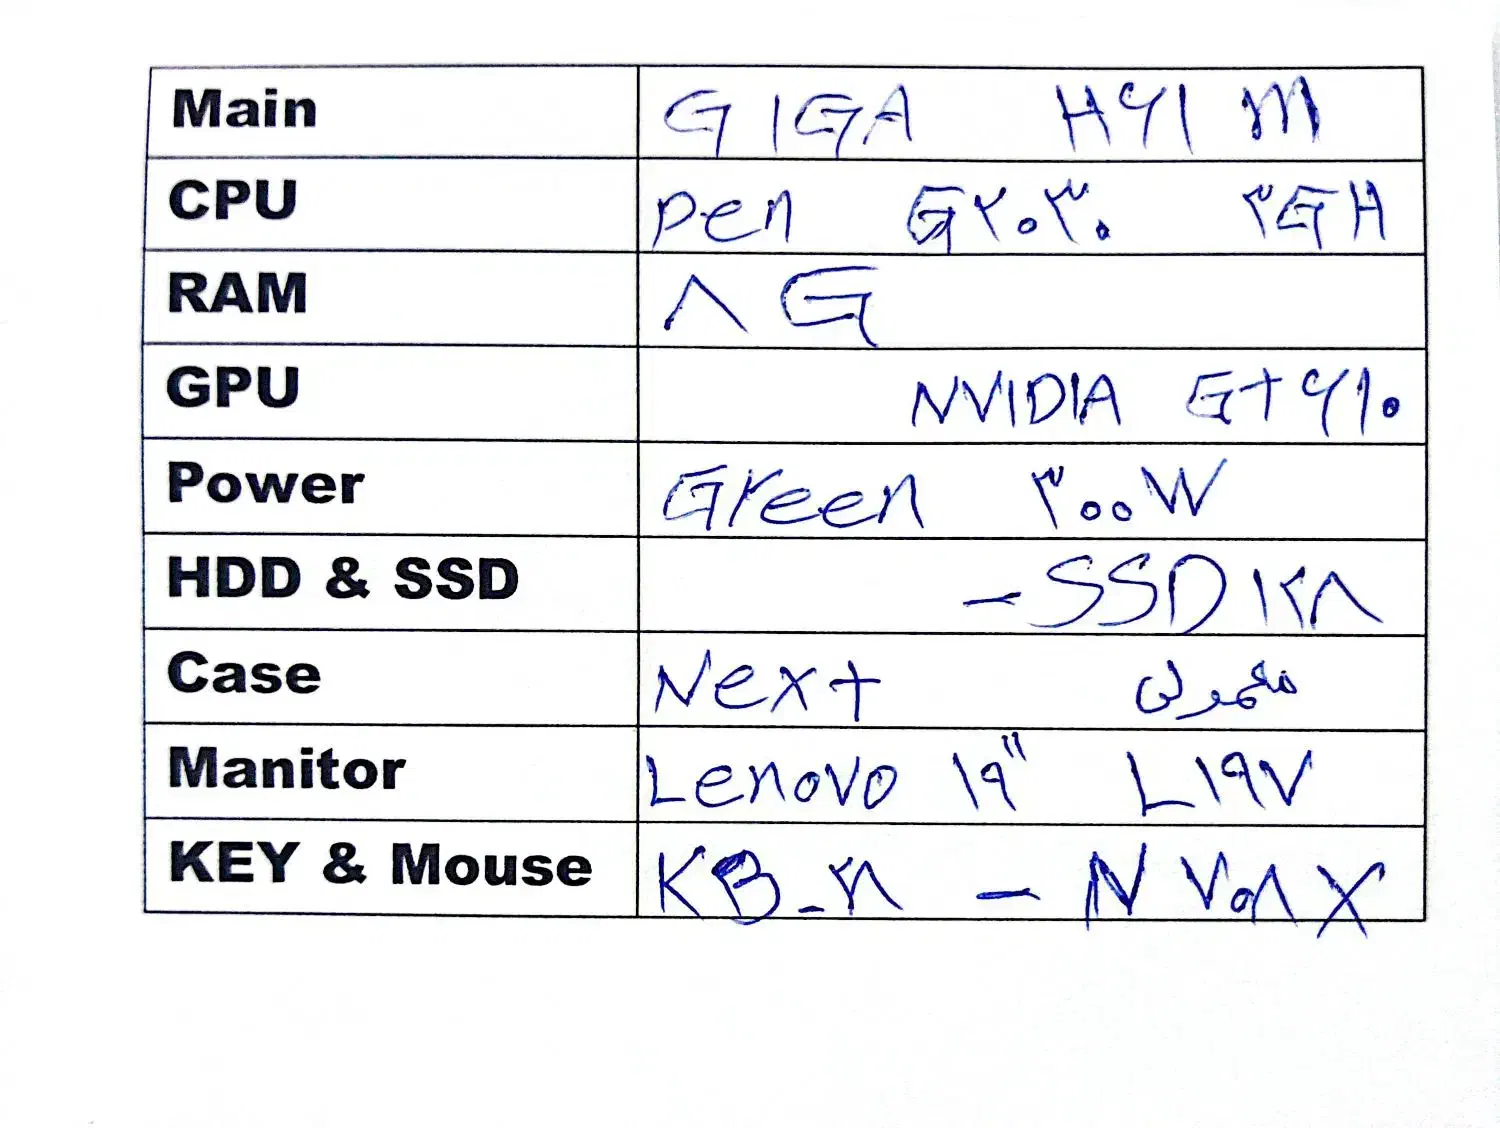 Main GIGA H۶۱ M
CPU Pen G۲۰۳۰ ۳GH
RAM ۸ G
GPU NVIDIA Gt ۶۱۰
Power Green ۳۰۰W
HDD & SSD - SSD ۱۲۸
Case Next معمولی
Manitor Lenovo ۱۹" L۱۹۷
KEY & Mouse - N